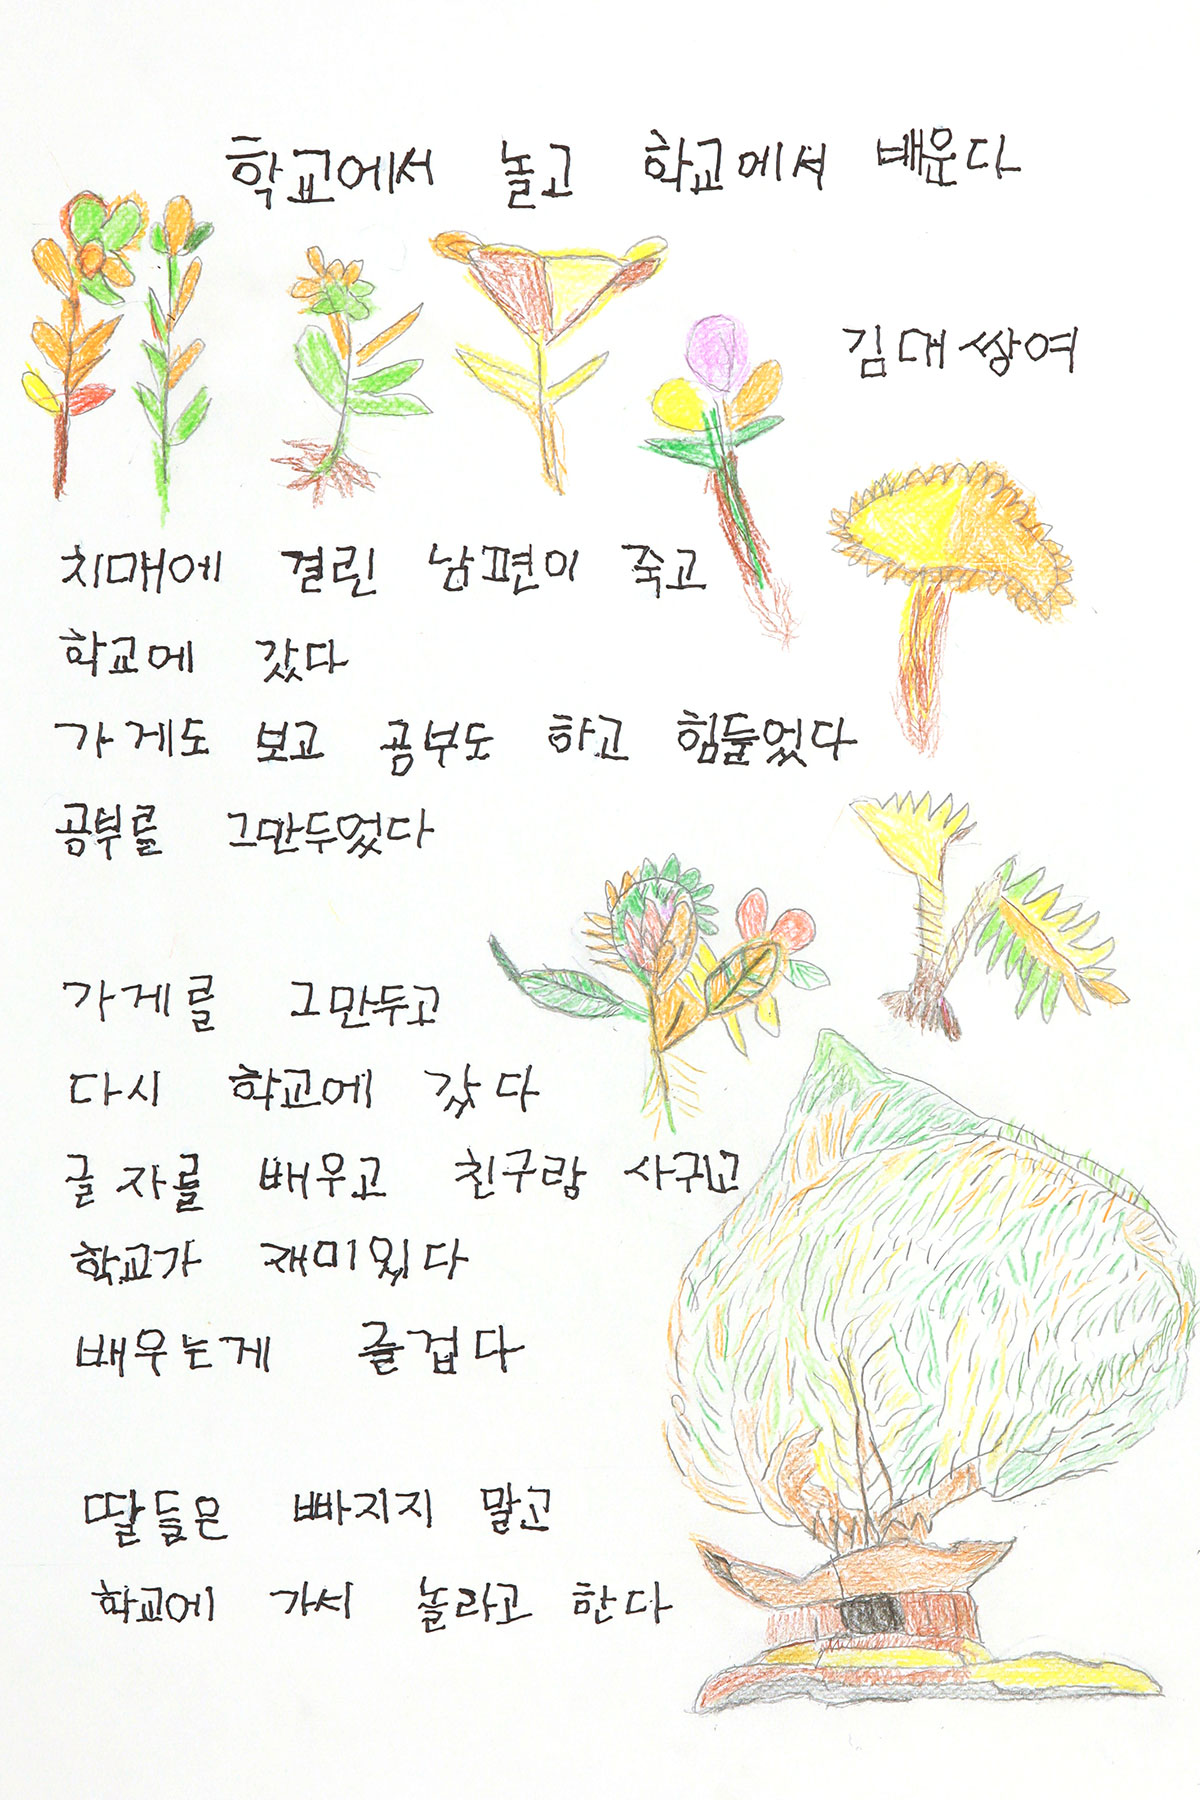 학교에서 놀고 학교에서 배운다
김대쌍여
치매에 결린 남편이 죽고
학교에 갔다
가게도 보고 공부도 하고 힘들었다
공부를 그만두었다
가게를 그만두고
다시 학교에 갔다
글자를 배우고 친구랑 사귀고
학교가 재미있다
배우는게 즐겁다
딸들은 빠지지 말고
학교에 가서 놀라고 한다